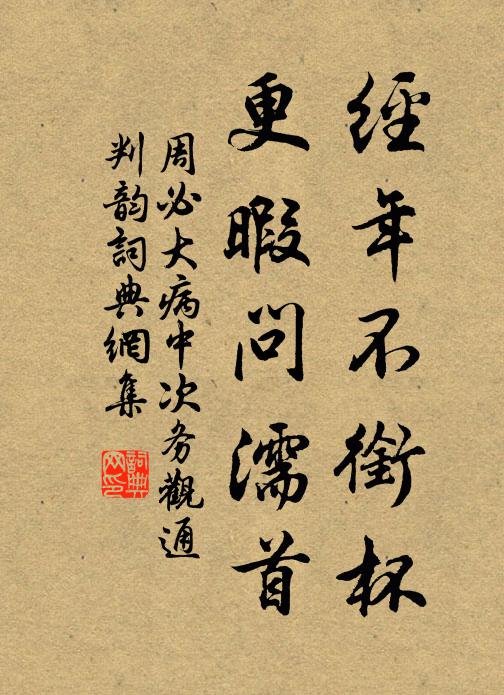 經年不銜杯
更暇問濡首
周必大病中次务觀通
判韵詞典網集
詞典网印